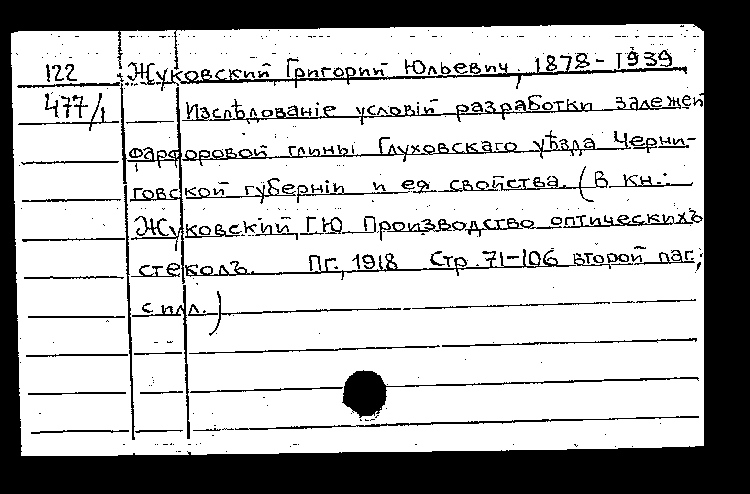 122 Жуковский, Григорий Юльевич, 1878-1939
477/1 Изслѣдованіе условій разработки залежей
фарфоровой глины Глуховскаго уѣзда Черни-
говской губерніи и ея свойства. (В кн.:
Жуковский, Г.Ю Производство оптическихъ
стеколъ. Пг., 1918 Стр. 71-106 второй паг.;
с илл.)